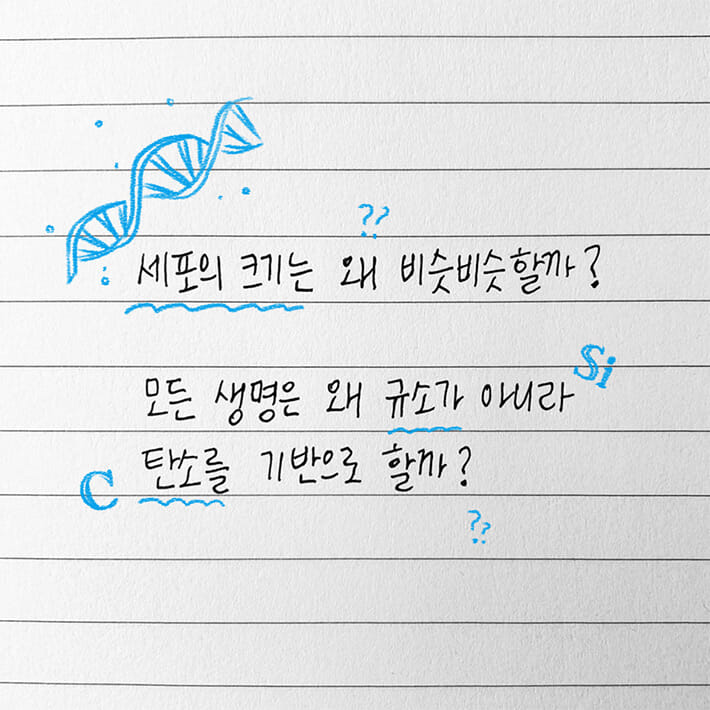 ??
세포의 크기는 왜 비슷비슷할까?
Si
모든 생명은 왜 규소가 아니라
C
탄소를 기반으로 할까?
??